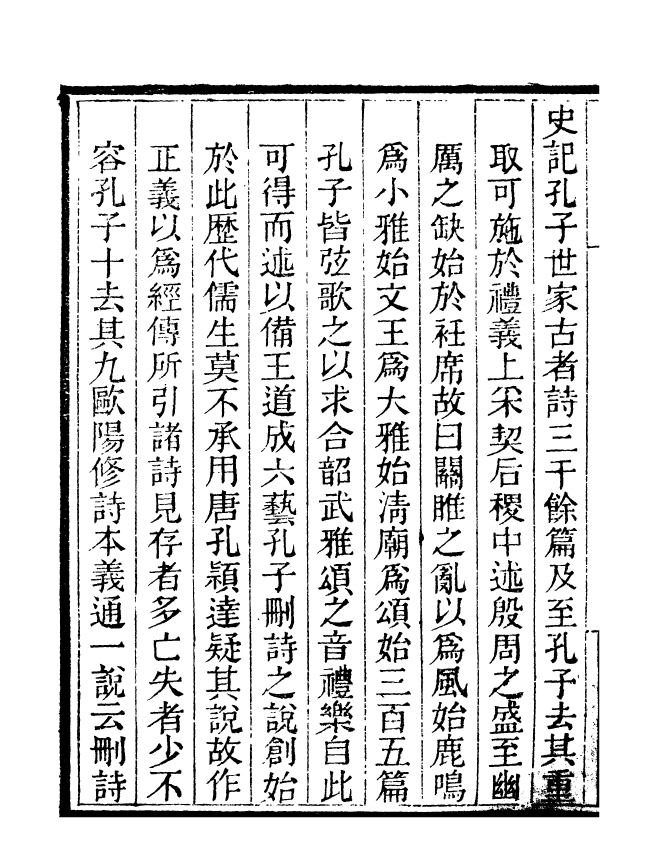 史記孔子世家古者詩三千餘篇及至孔子去其重
取可施於禮義上采契后稷中述殷周之盛至幽
厲之缺始於衽席故曰關雎之亂以爲風始鹿鳴
爲小雅始文王爲大雅始淸廟爲頌始三百五篇
孔子皆弦歌之以求合韶武雅頌之音禮樂自此
可得而述以備王道成六藝孔子刪詩之說創始
於此歷代儒生莫不承用唐孔穎達疑其說故作
正義以爲經傳所引諸詩見存者多亡失者少不
容孔子十去其九歐陽修詩本義通一說云刪詩